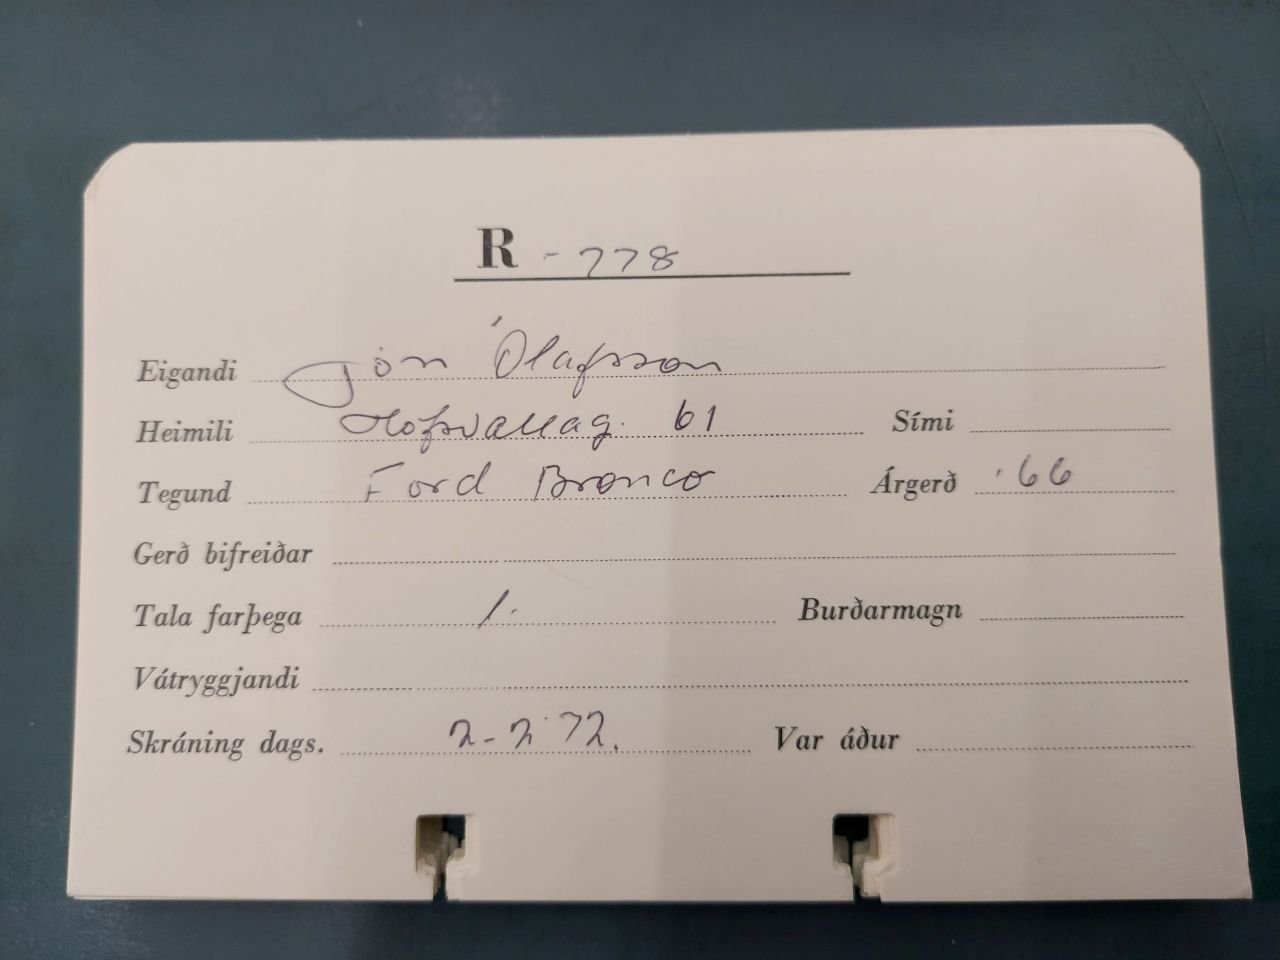 R - 778
Eigandi Jón Ólafsson
Heimili Hofsvallag. 61 Sími
Tegund Ford Bronco Árgerð '66
Gerð bifreiðar
Tala farþega 1. Burðarmagn
Vátryggjandi
Skráning dags. 2-2'72. Var áður